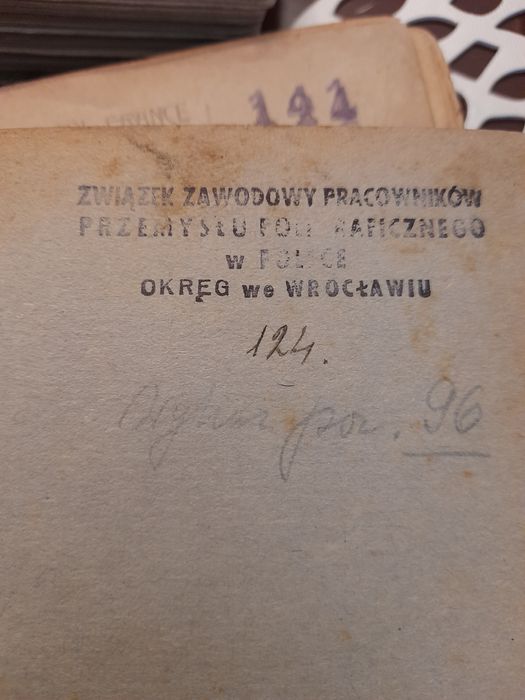 141
ZWIĄZEK ZAWODOWY PRACOWNIKÓW
PRZEMYSŁU POLIGRAFICZNEGO
w POLSCE
OKRĘG we WROCŁAWIU
124.
poz. 96